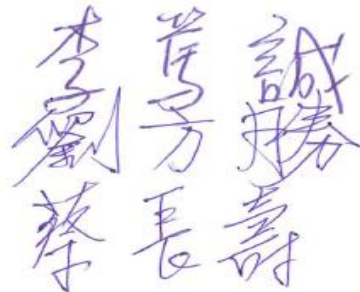 李篤誠
劉芳勝
蔡長壽